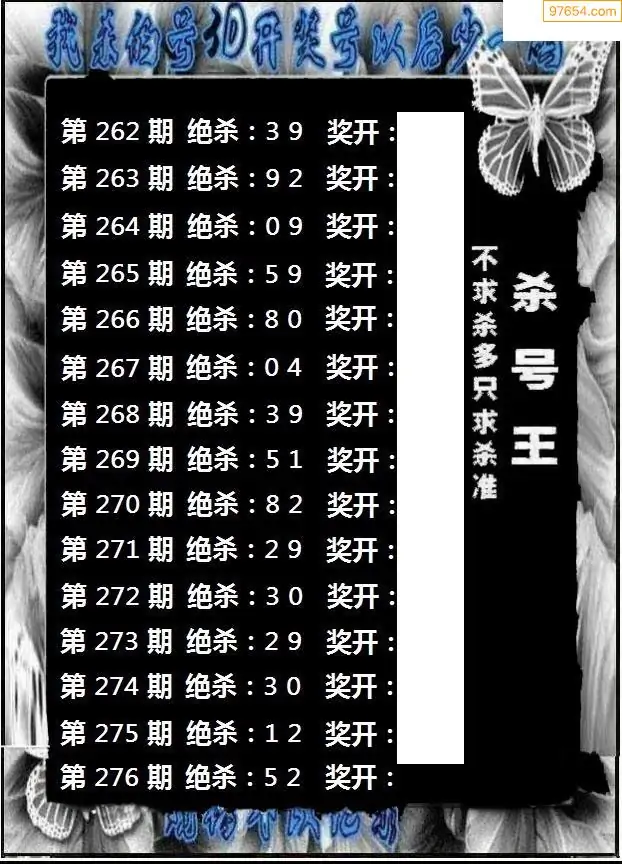 97654.com
我来的号3D开奖号以后少一码
第 262 期 绝杀：3 9 奖开：
第 263 期 绝杀：9 2 奖开：
第 264 期 绝杀：0 9 奖开：
第 265 期 绝杀：5 9 奖开：
第 266 期 绝杀：8 0 奖开：
第 267 期 绝杀：0 4 奖开：
第 268 期 绝杀：3 9 奖开：
第 269 期 绝杀：5 1 奖开：
第 270 期 绝杀：8 2 奖开：
第 271 期 绝杀：2 9 奖开：
第 272 期 绝杀：3 0 奖开：
第 273 期 绝杀：2 9 奖开：
第 274 期 绝杀：3 0 奖开：
第 275 期 绝杀：1 2 奖开：
第 276 期 绝杀：5 2 奖开：
杀号王
不求杀多只求杀准